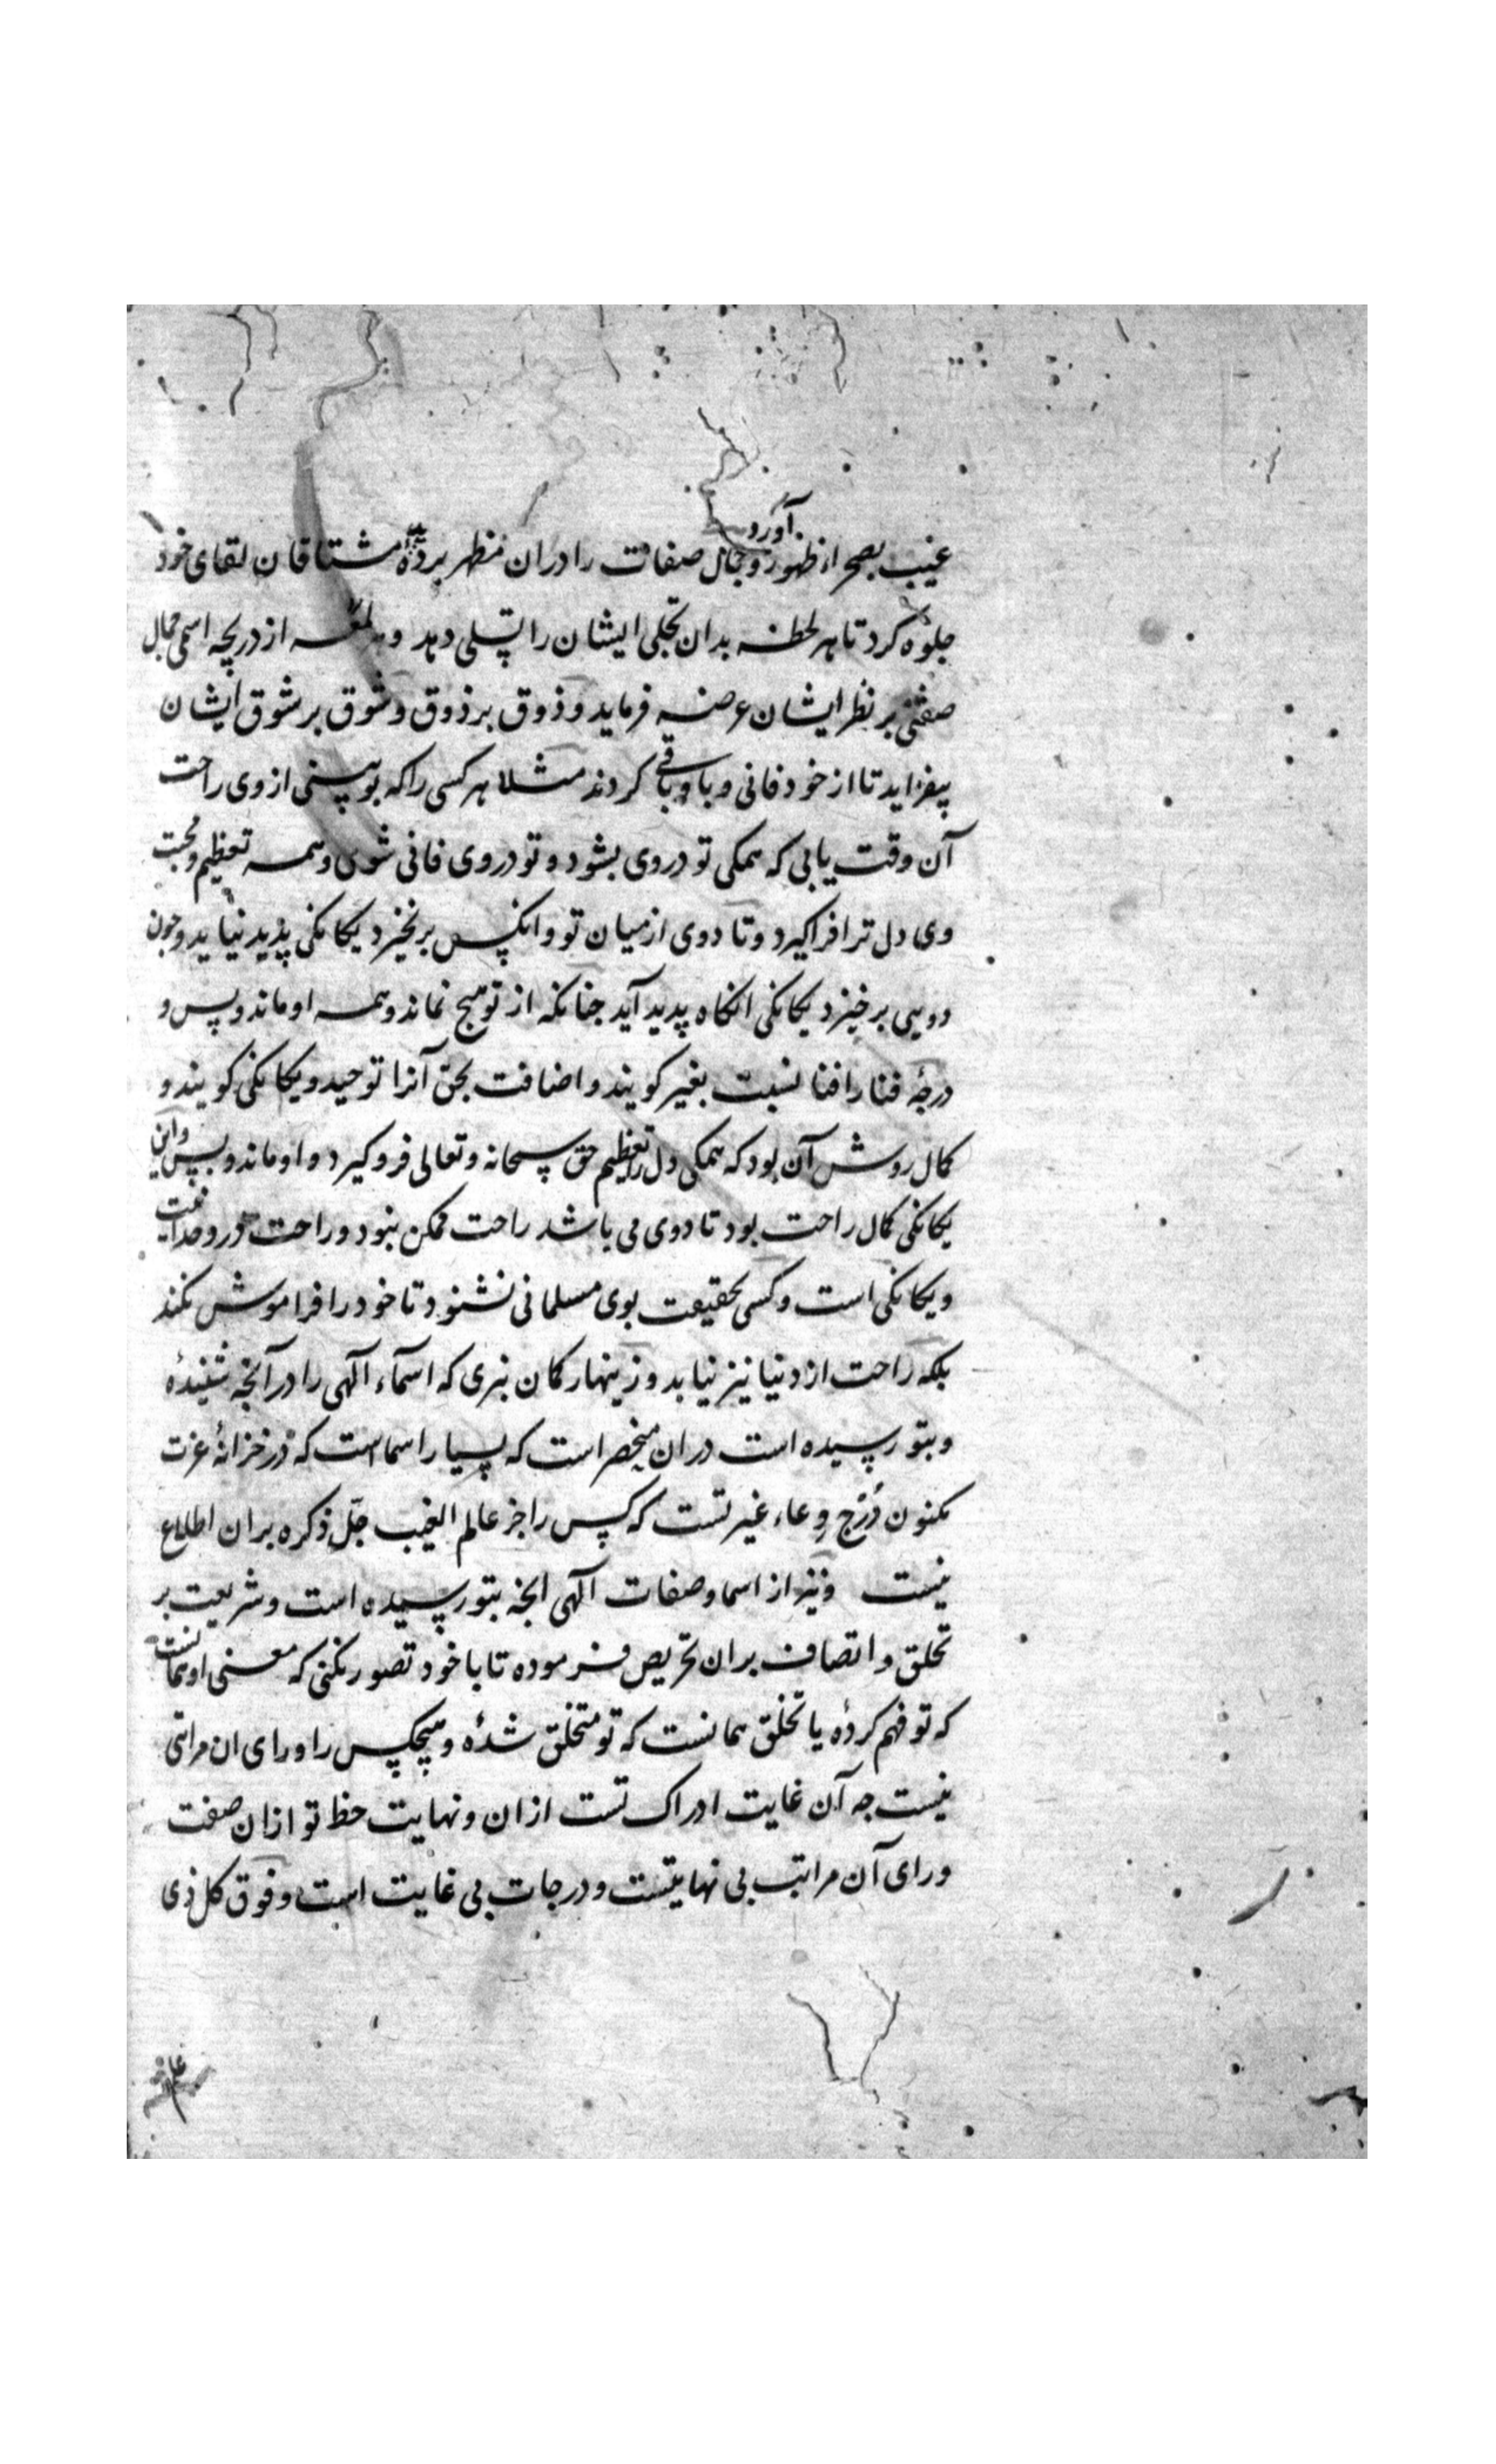 غیب بصحراء ظهور آورد و جمال صفات را دران منظر بر دیدهٔ مشتاقان لقای خود
جلوه کرد تا هر لحظه بدان تجلی ایشان را تسلی دهد و هر لمعه از دریچه اسمی جمال
صفتی بر نظر ایشان عرضه فرماید و ذوق بر ذوق و شوق بر شوق ایشان
بیفزاید تا از خود فانی و با و باقی کردند مثلا هر کسی را که بوبینی از وی راحت
آن وقت یابی که همکی تو در وی بشود و تو در وی فانی شوی و همه تعظیم و محبت
وی دل ترا فراکیرد و تا دوی از میان تو و انکس برنخیزد یکانکی پذید نیاید و جون
دویی برخیزد یکانکی انکاه پدید آید جنانکه از تو هیج نماند و همه او ماند و بس و
درجهٔ فنا را فنا نسبت بغیر کویند و اضافت بحق آنرا توحید و یکانکی کویند و
کمال روش آن بود که همکی دل را تعظیم حق سبحانه و تعالی فروکیرد و او ماند و بس و این
یکانکی کمال راحت بود تا دوی می باشد راحت ممکن نبود و راحت در وحدانیت
و یکانکی است و کسی بحقیقت بوی مسلمانی نشنود تا خود را فراموش نکند
بلکه راحت از دنیا نیز نیابد و زینهار کمان نبری که اسماء الهی را در آنجه شنیدهٔ
و بتو رسیده است دران منحصر است که بسیار اسماست که در خزانهٔ عزت
مکنون و درج وعاء غیرتست که کس را جز عالم الغیب جل ذکره بران اطلاع
نیست و نیز از اسما و صفات الهی انجه بتو رسیده است و شریعت بر
تخلق و اتصاف بران تحریص فرموده تا با خود تصور نکنی که معنی او همانست
که تو فهم کردهٔ یا تخلق همانست که تو متخلق شدهٔ و هیچکس را ورای ان مراتی
نیست جه آن غایت ادراک تست ازان و نهایت حظ تو ازان صفت
ورای آن مراتب بی نهایتست و درجات بی غایت است و فوق کل ذی